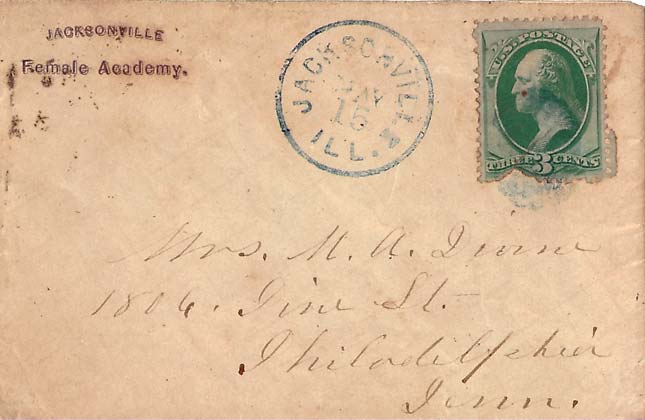 JACKSONVILLE
Female Academy.
JACKSONVILLE
MAY
15
ILL.
U.S. POSTAGE
THREE 3 CENTS
Mrs. M. A. Divine
1806. Pine St.
Philadelphia
Penn.